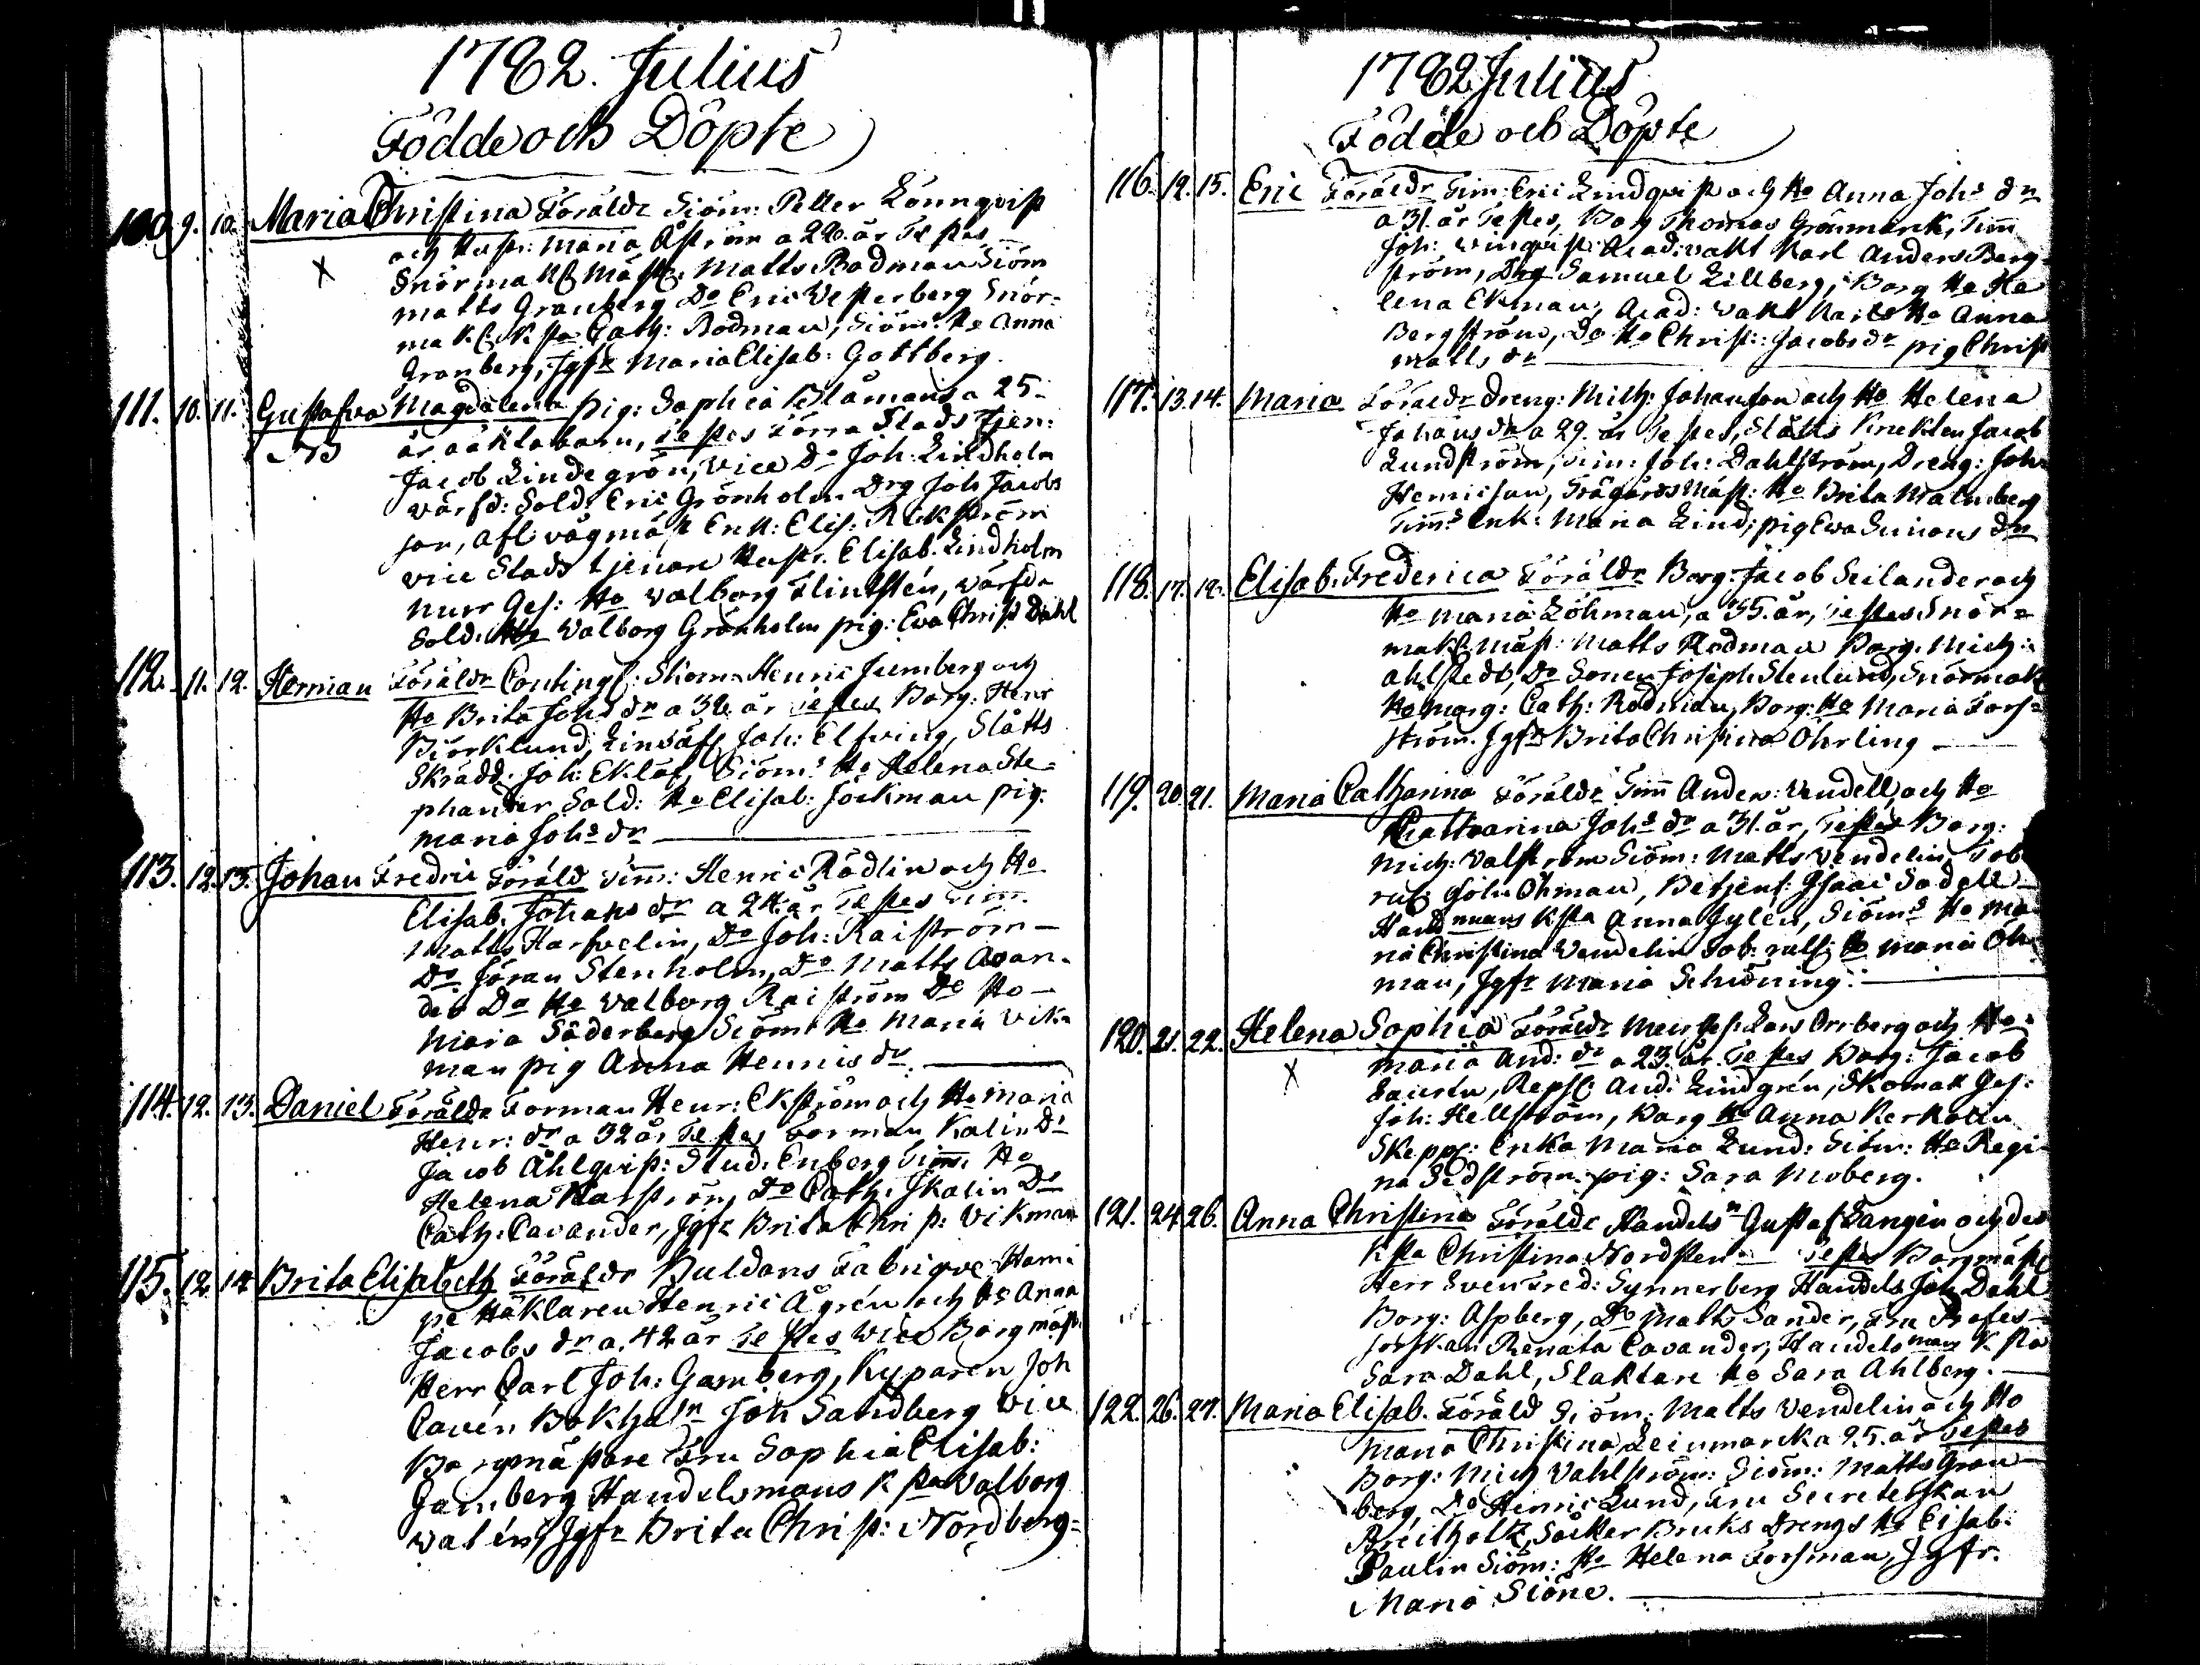 1782. Julius
Födde och Döpte
100 9. 10. Maria Christina Föräldr Siöm: Petter Lönnqvist
och Hustr: Maria Åström a 26. år Testes
Snörmak: Mäst: Matts Rodman Siöm
Matts Granberg Do Eric Westerberg Snör-
mak: K sta Cath: Rodman, Siöm: Ho Anna
Granberg, Jgfr Maria Elisab: Gottberg.
111. 10. 11. Gustafva Magdalena pig: Sophia Blåmans a 25.
NB år oäkta barn, Testes Förra Stads Tjen:
Jacob Lindegrén, Vice Do Joh: Lindholm
värfd: Sold: Eric Grönholm Drg Joh Jacobs
son, afl: vågmäst Enk: Elis: Rikström
vice Stads tjenare Hustr. Elisab. Lindholm
Murr Ges: Ho Walborg Flintstén, värfda
Sold: Ho Valborg Grönholm pig: Eva Christ Dahl
112. 11. 12. Herman Föräldr Contings: Skom: Henric Jumberg och
Ho Brita Johs dr a 36 år Testes Borg: Henr
Björklund, Joh: Elfving, Slåtts
Skrädd: Joh: Eklöf, Siöms Ho Helena Ste-
phander Sold: Ho Elisab: Jockman pig:
Maria Johs dr
113. 12. 13. Johan Fredric Föräld Timm: Henric Rödlin och Ho
Elisab. Johans dr a 24. år Testes Timm.
Matts Harfvelin, Do Joh: Raiström
Do Jöran Stenholm, Do Matts Avan-
der Do Ho Valborg Raiström Do Ho
Maria Söderberg Siöm: Ho Maria Vik-
man pig Anna Henrics dr.
114. 12. 13. Daniel Föräldr Forman Henr: Ekström och Ho Maria
Henr: dr a 32 år Testes Forman Kalin Do
Jacob Ahlqvist: Stud: Enberg Timm: Ho
Helena Do Cath: Skalin Do
Cath: Cavander, Jgfr Brita Christ: Vikman
115. 12. 14. Brita Elisabeth Föräldr Buldans Fabriqve Ham
pe Häklaren Henric Ågrén och Ho Anna
Jacobs dr a. 42 år Testes Vice Borgmäst:
Herr Carl Joh: Gamberg, Kyparen Joh
Cavén Bokhaln Joh Sandberg Vice
Borgmästare Fru Sophia Elisab:
Gamberg Handelsmans K sta Valborg
Walén, Jgfr Brita Christ: Nordberg
1782 Julius
Födde och Döpte
116. 12. 15. Eric Föräldr Tim: Eric Lindqvist och Ho Anna Johs dr
a 31. år Testes, Borg Thomas Grönmark, Timm
Joh: Vinqvist: Acad: vakt Karl Anders Berg-
ström, Drg Samuel Lillberg, Borg Ho He
lena Ekman, Acad: Vakt Karls Ho Anna
Bergström, Do Ho Christ: Jacobs dr pig Christ
Matts dr
117. 13. 14. Maria Föräldr Dreng: Mich: Johanson och Ho Helena
Johans dr a 29. år Testes, Slåtts Knekten Jacob
Lundström, Tim: Joh: Dahlström, Dreng: Joh:
Henricsan, Trägårdsmäst: Ho Brita Malmberg
Timms Enk: Maria Lind; pig Eva Simons dr
118. 17. 18. Elisab. Frederica Föräldr Borg: Jacob Seilander och
Ho Maria Löhman, a 35. år, Testes Snör-
mak: Mäst: Matts Rodman Borg. Mich:
Ahlstedt, Do Sonen Joseph Stenlund, Snörmak
Ho Marg: Cath: Rodman, Borg: Ho Maria Fors-
ström. Jgfr Brita Christina Öhrling
119. 20. 21. Maria Catharina Föräldr Timm Anders: Vendell, och Ho
Catharina Johs dr a 31. år, Testes Borg:
Mich: Valström Siöm: Matts Vendelin Tob
Joh: Öhman, Betjent: Isaac Sadell
Handmans Ksta Anna Gylén, Siöms Ho Ma
ria Christina Vendelin Tob: Ho Maria Öh
man, Jgfr Maria Schröning.
120. 21. 22. Helena Sophia Föräldr Lars Orrberg och Ho
Maria And: dr a 23. år. Testes Borg: Jacob
Laurén, Repsl: And: Lindgrén, Skomak Ges:
Joh: Hellström, Borg Ho Anna Kerkolin
Skepps: Enka Maria Lund: Siöm: Ho Regi-
na Sedström. pig: Sara Moberg.
121. 24. 26. Anna Christina Föräldr Handelsn Gustaf Langén och des
Ksta Christina Nordsten Testes Borgmäst
Herr Sven Fred: Synnerberg Handels Joh Dahl
Borg: Aspberg, Do Matts Sander, Fru Profes-
sorskan Renata Cavander, Handelsman K sta
Sara Dahl, Slaktare Ho Sara Ahlberg.
122. 26. 27. Maria Elisab. Föräld Siöm: Matts Vendelin och Ho
Maria Christina Leinmarck a 25. år Testes
Borg: Mich Vahlström: Siöm: Matts Gran-
berg, Do Henric Lund, Fru Secreterskan
Breitholtz, Såcker Bruks Drengs Ho Elisab.
Paulin Siöm: Ho Helena Forsman, Jgfr.
Maria Siöne.